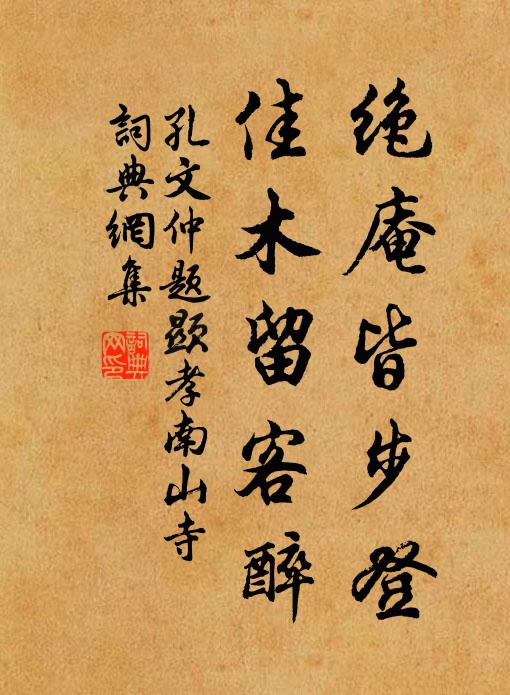 絶庵皆步登
佳木留客醉
孔文仲題顯孝南山寺
詞典網集
詞典網印